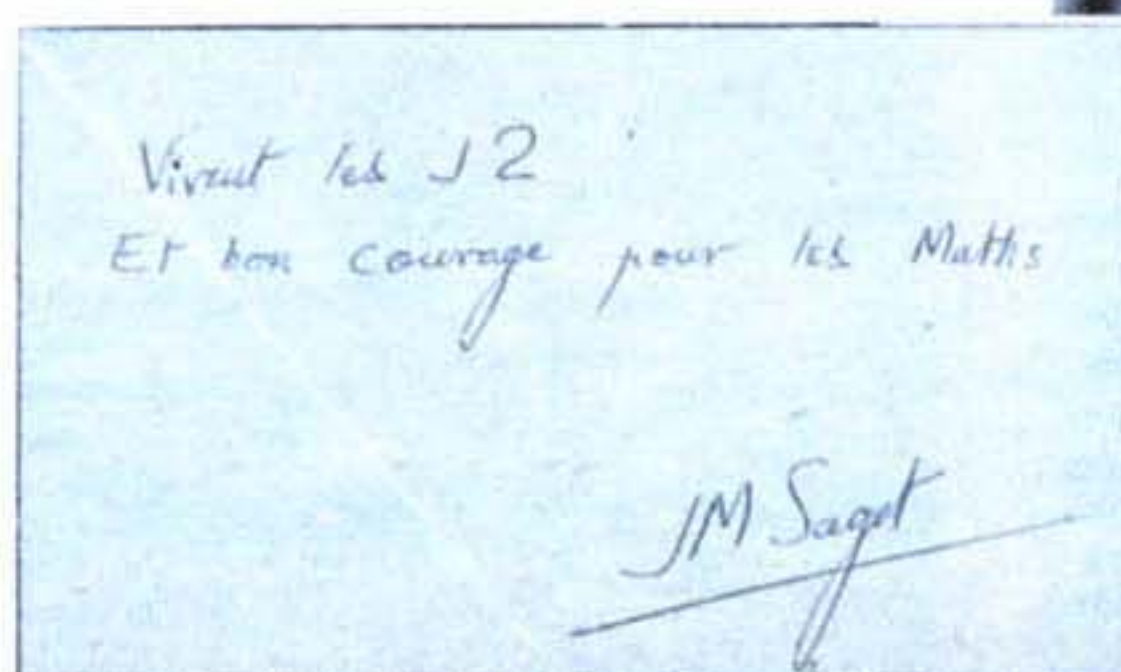 Vivent les J2
Et bon courage pour les Maths
JM Saget